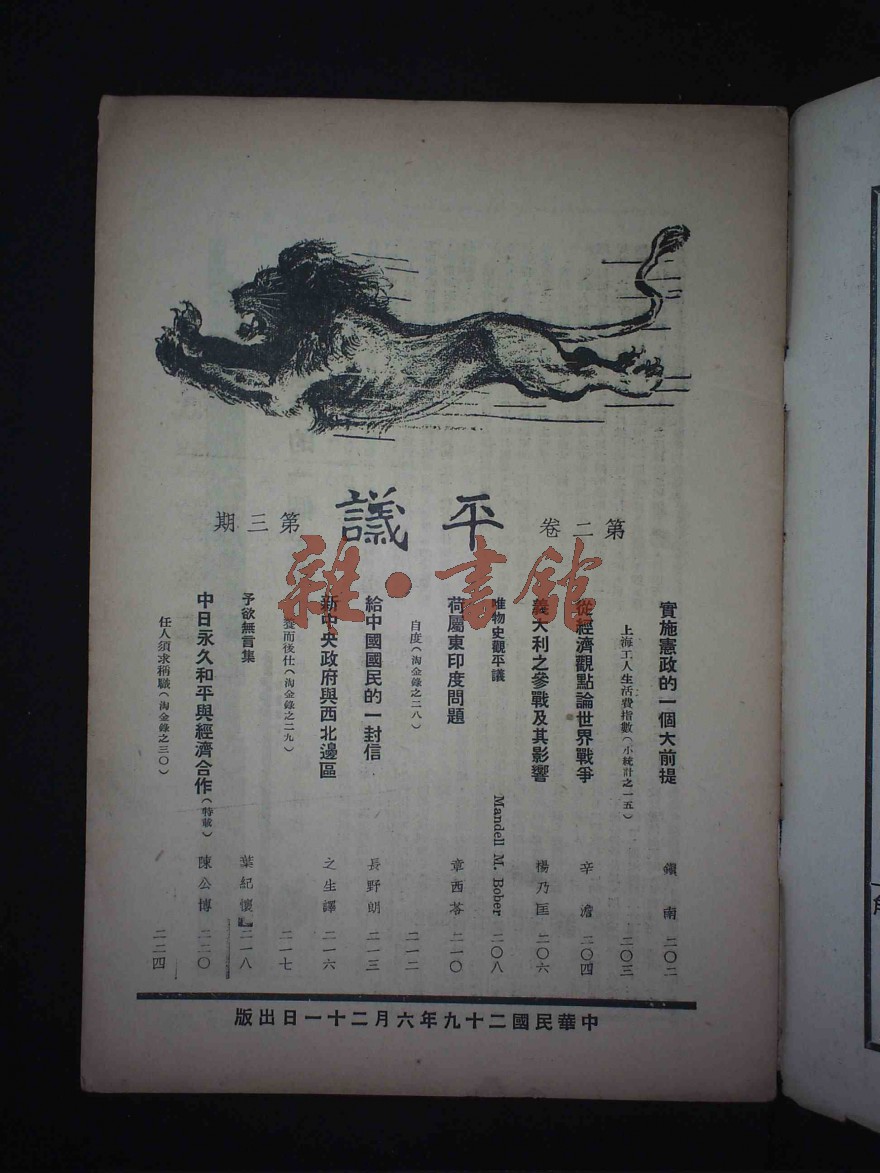 第二卷
平議
第三期
實施憲政的一個大前提 鎮南 二〇二
上海工人生活費指數(小統計之一五) 二〇三
從經濟觀點論世界戰爭 辛澹 二〇四
義大利之參戰及其影響 楊乃匡 二〇六
唯物史觀平議 Mandell M. Bober 二〇八
荷屬東印度問題 章西苓 二一〇
自度(淘金錄之二八) 二一二
給中國國民的一封信 長野朗 二一三
新中央政府與西北邊區 之生譯 二一六
養而後仕(淘金錄之二九) 二一七
予欲無言集 葉紀懷 二一八
中日永久和平與經濟合作(特載) 陳公博 二二〇
任人須求稱職(淘金錄之三〇) 二二四
中華民國二十九年六月二十一日出版
雜·書館